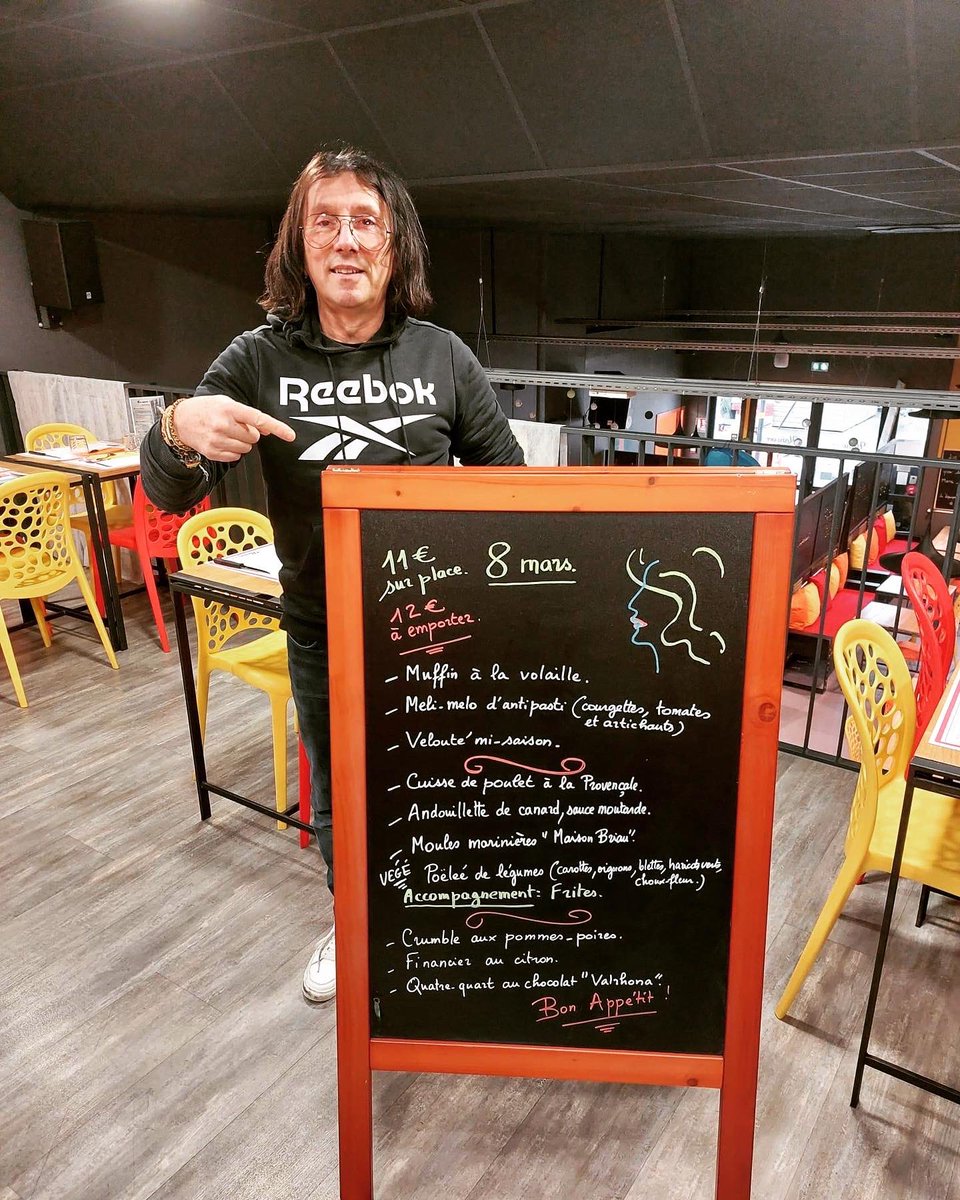 Reebok
11€
sur place.
8 mars.
12€
à emporter.
- Muffin à la volaille.
- Meli-melo d'antipasti (courgettes, tomates
et artichauts)
- Velouté mi-saison.
- Cuisse de poulet à la Provençale.
- Andouillette de canard, sauce moutarde.
- Moules marinières "Maison Briau".
VEGÉ Poëleé de légumes (carottes, oignons, blettes, haricots verts,
choux-fleur.)
Accompagnement: Frites.
- Crumble aux pommes-poires.
- Financier au citron.
- Quatre-quart au chocolat "Valrhona".
Bon Appétit !